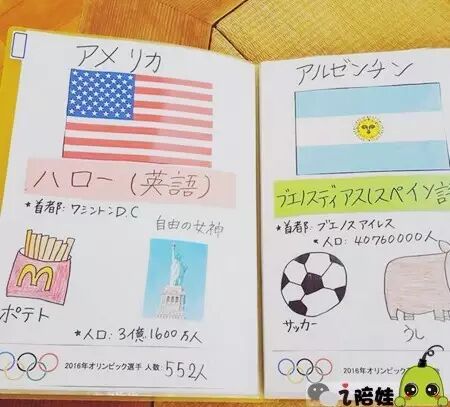 アメリカ
ハロー(英語)
*首都:ワシントンD.C
自由の女神
M
ポテト
*人口:3億1600万人
2016年オリンピック選手 人数:552人
アルゼンチン
ブエノスディアス(スペイン語
*首都:ブエノスアイレス
*人口:40760000人
サッカー
うし
2016年オリンピック選
i陪娃